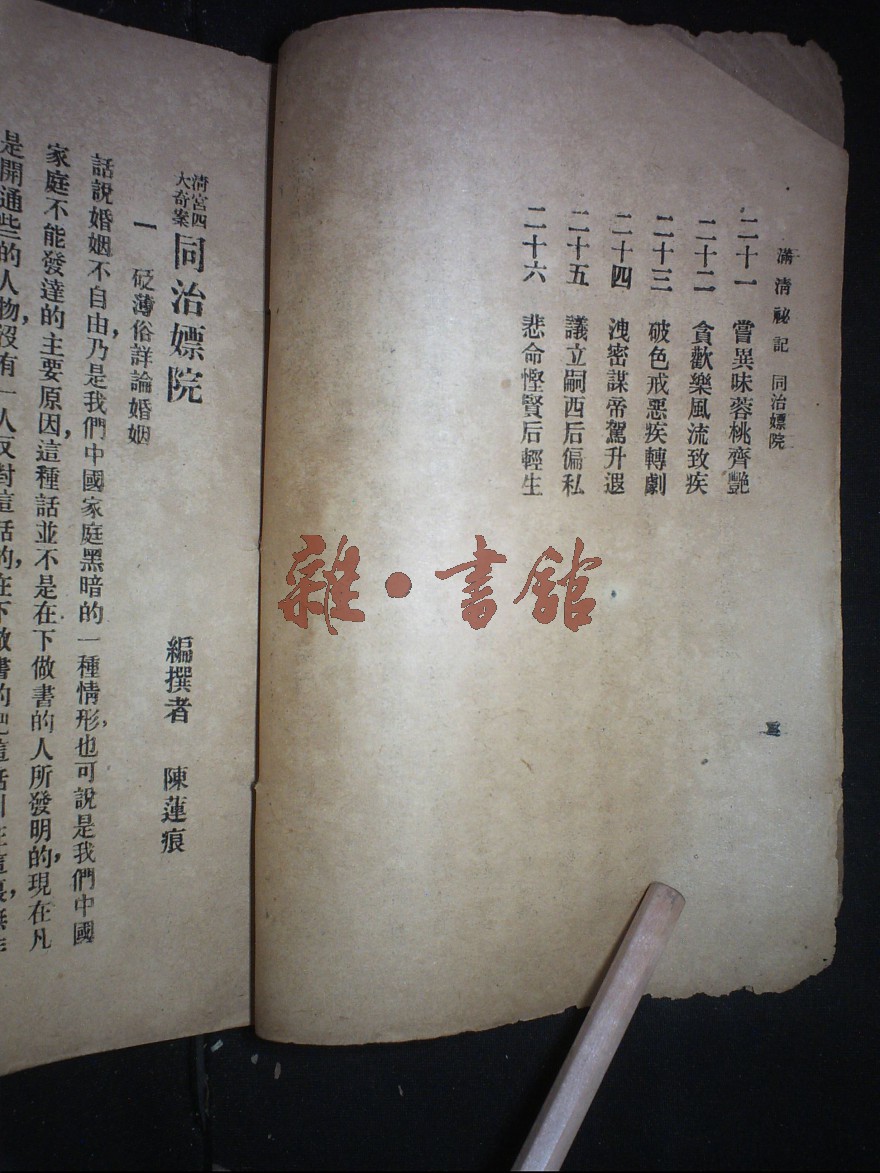 滿清祕記 同治嫖院
二十一 嘗異味蓉桃齊艷
二十二 貪歡樂風流致疾
二十三 破色戒惡疾轉劇
二十四 洩密謀帝駕升遐
二十五 議立嗣西后偏私
二十六 悲命慳賢后輕生
清宮四大奇案 同治嫖院
編撰者 陳蓮痕
一 砭薄俗詳論婚姻
話說婚姻不自由,乃是我們中國家庭黑暗的一種情形,也可說是我們中國
家庭不能發達的主要原因,這種話並不是在下做書的人所發明的,現在凡
是開通些的人物,沒有一人反對這話的,在下做書的把這話
雜·書館